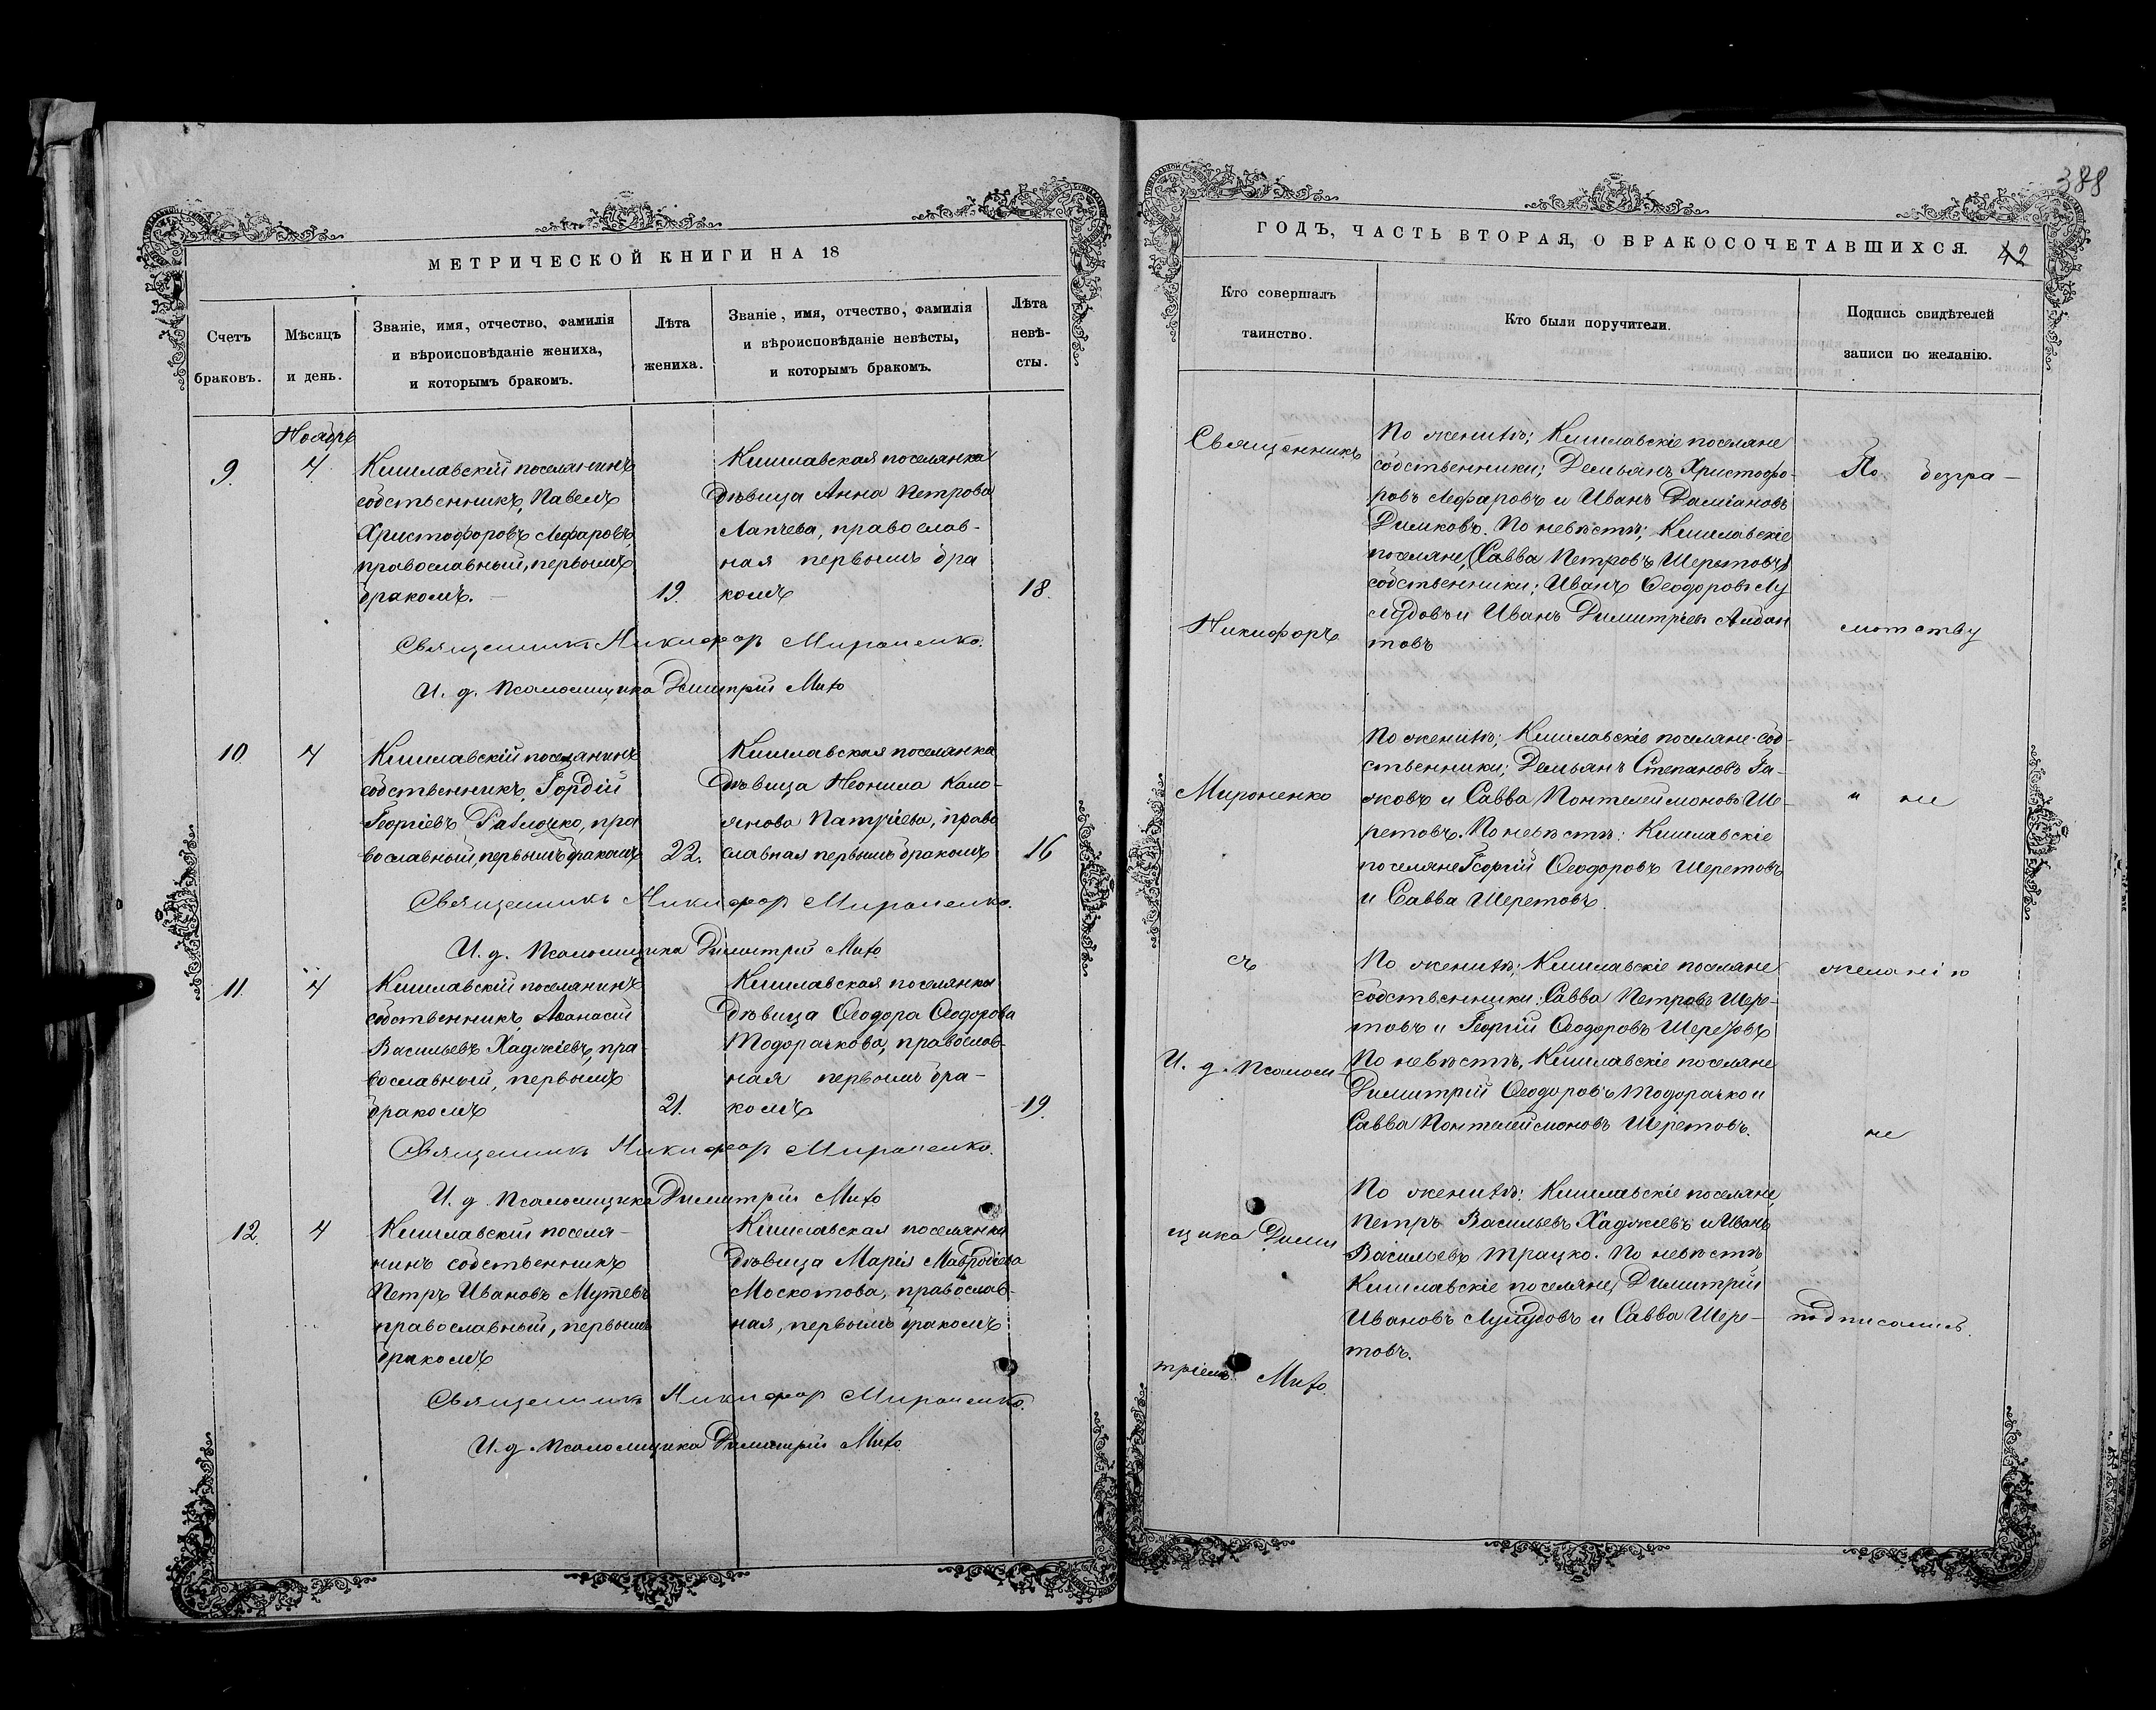 МЕТРИЧЕСКОЙ КНИГИ НА 18
Счетъ
браковъ.
Мѣсяцъ
и день.
Званіе, имя, отчество, фамилія
и вѣроисповѣданіе жениха,
и которымъ бракомъ.
Лѣта
жениха.
Званіе, имя, отчество, фамилія
и вѣроисповѣданіе невѣсты,
и которымъ бракомъ.
Лѣта
невѣ-
сты.
Ноябрь
9.
4.
Кишлавскій поселянинъ
собственникъ, Павелъ
Христофоровъ Лефаровъ,
православный, первымъ
бракомъ. —
19.
Кишлавская поселянка
дѣвица Анна Петрова
Лапчева, православ-
ная первымъ бра
комъ
18.
Священникъ Никифоръ Мироненко.
И. д. Псаломщика Димитрій
10.
4
Кишлавскій поселянинъ
собственникъ, Гордій
Георгіевъ Равлюцко, пра
вославный, первымъ бракомъ
22.
Кишлавская поселянка
дѣвица Неонила Кало-
янова Патріева, право
славная первымъ бракомъ
16
Священникъ Никифоръ Мироненко.
И. д. Псаломщика Димитрій
11.
4
Кишлавскій поселянинъ
собственникъ, Аѳанасій
Васильевъ Хаджіевъ, пра-
вославный, первымъ
бракомъ
21.
Кишлавская поселянка
дѣвица Ѳеодора Ѳеодорова
Тодорачкова, православ-
ная первымъ бра-
комъ
19.
Священникъ Никифоръ Мироненко.
И. д. Псаломщика Димитрій
12.
4
Кишлавскій поселя-
нинъ собственникъ
Петръ Ивановъ Мутевъ
православный, первымъ
бракомъ
Кишлавская поселянка
дѣвица Марія Мавродіева
Москотова, православ-
ная, первымъ бракомъ
Священникъ Никифоръ Мироненко.
И. д. Псаломщика Димитрій
388
ГОДЪ, ЧАСТЬ ВТОРАЯ, О БРАКОСОЧЕТАВШИХСЯ.
42
Кто совершалъ
таинство.
Кто были поручители.
Подпись свидѣтелей
записи по желанію.
Священникъ
Никифоръ
Мироненко
съ
И. д. Псалом-
щика Дими
тріемъ
По женихѣ; Кишлавскіе поселяне
собственники; Демьянъ Христофо-
ровъ Лефаровъ и Иванъ Даміановъ
Димковъ. По невѣстѣ; Кишлавскіе
поселяне, (Савва Петровъ Шеретовъ)
собственники; Иванъ Ѳеодоровъ
и Иванъ Димитріевъ
товъ
По женихѣ; Кишлавскіе поселяне соб-
ственники; Демьянъ Степановъ Га-
жовъ и Савва Понтелеймоновъ Ше-
ретовъ. По невѣстѣ: Кишлавскіе
поселяне Георгій Ѳеодоровъ Шеретовъ
и Савва Шеретовъ.
По женихѣ; Кишлавскіе поселяне
собственники: Савва Петровъ Шере-
товъ и Георгій Ѳеодоровъ Шеретовъ
По невѣстѣ, Кишлавскіе поселяне
Димитрій Ѳеодоровъ Тодорачко и
Савва Понтелеймоновъ Шеретовъ.
По женихѣ: Кишлавскіе поселяне,
Петръ Васильевъ Хаджіевъ и Иванъ
Васильевъ Трацко. По невѣстѣ
Кишлавскіе поселяне, Димитрій
Ивановъ и Савва Шере-
товъ.
По безгра-
мотству
и не
желанію
не
подписались.